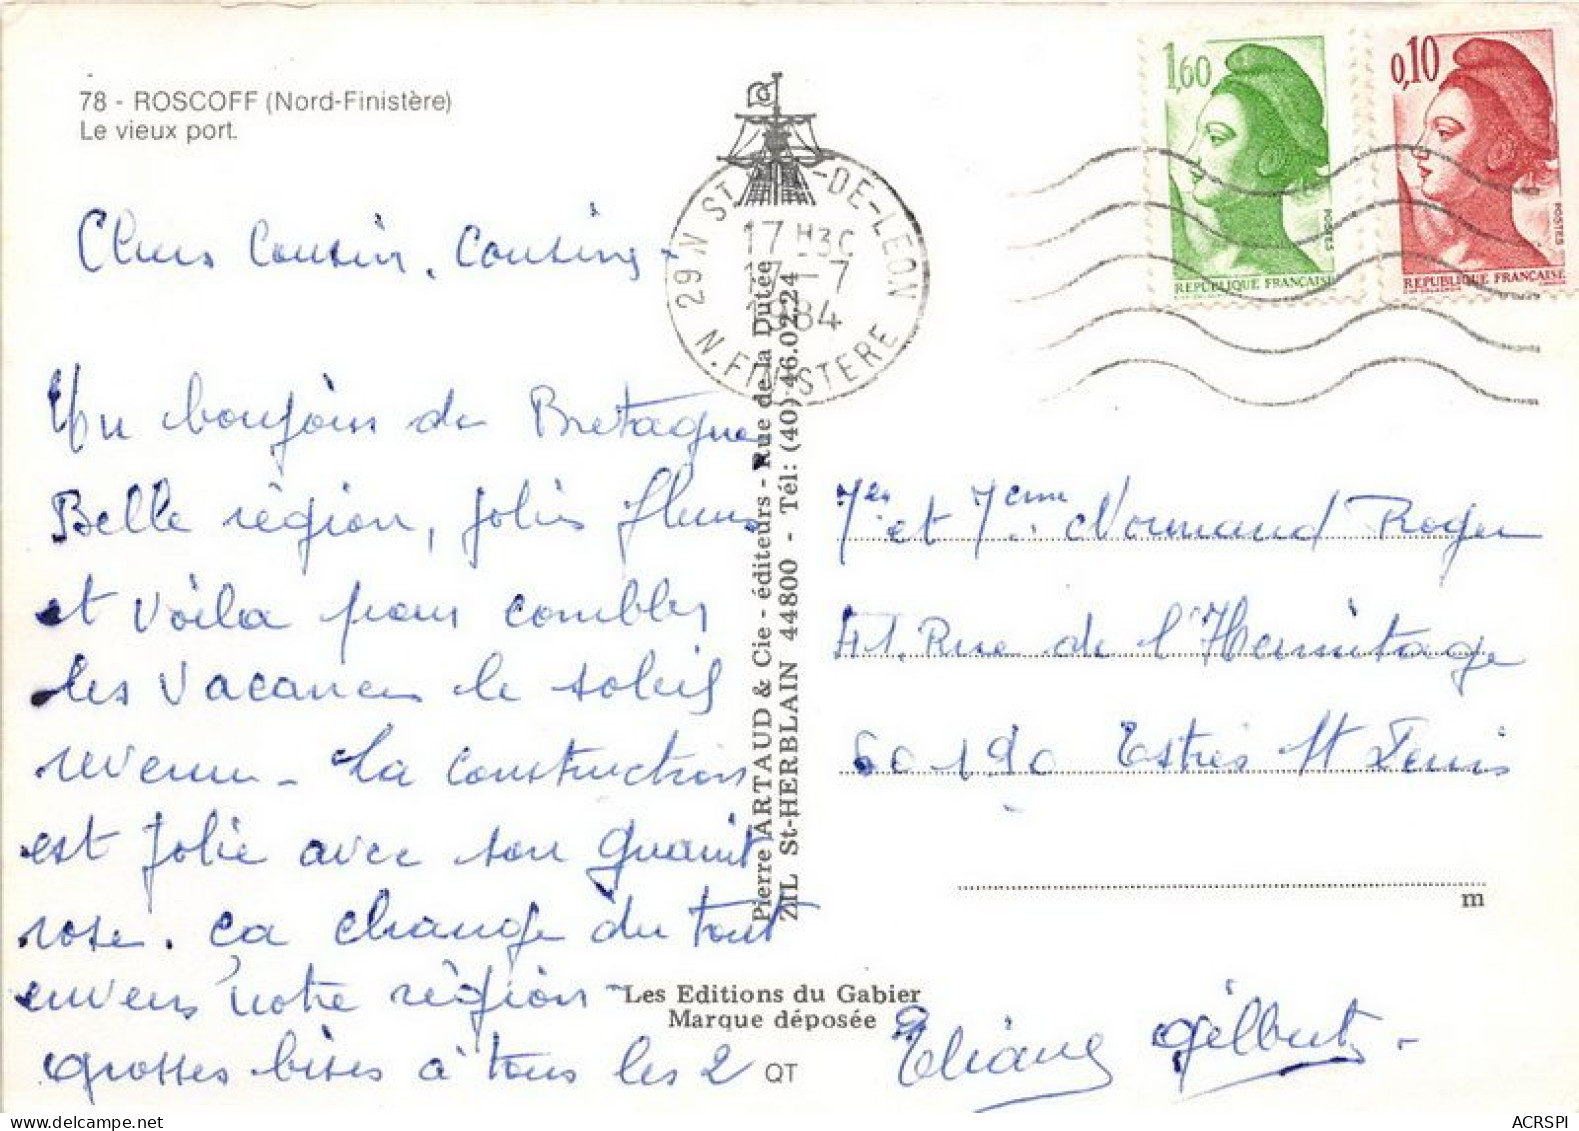 78 - ROSCOFF (Nord-Finistère)
Le vieux port.
Chers Cousin, Cousine
Un bonjour de Bretagne
Belle région, jolies fleurs
et voila pour combler
les vacances le soleil
revenu - la construction
est jolie avec son granit
rose. ça change du tout
envers notre région
grosses bises à tous les 2
29 N ST -DE-LEON
17 H3C
17-7
1984
N. FINISTERE
Pierre ARTAUD & Cie - éditeurs - Rue de la Dutée
ZIL St-HERBLAIN 44800 - Tél: (40) 46.02.24
Les Editions du Gabier
Marque déposée
QT
1,60
POSTES
REPUBLIQUE FRANÇAISE
0,10
POSTES
REPUBLIQUE FRANÇAISE
Mr et Mme Normand Roger
41. Rue de l'Hermitage
60190 Estrées St Denis
m
Eliane Gilbert
ACRSPI